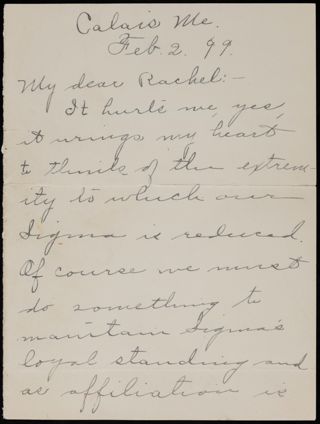 Calais Me.
Feb. 2. 99.
My dear Rachel:-
It hurts me, yes,
it wrings my heart
to think of the extrem-
ity to which our
Sigma is reduced.
Of course we must
do something to
maintain Sigma's
loyal standing and
as affiliation is